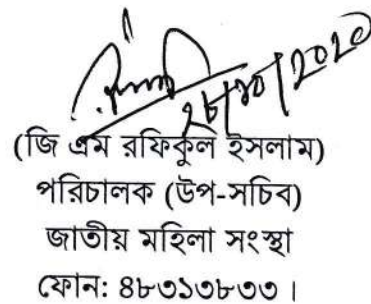 ২৮/১০/২০২০
(জি এম রফিকুল ইসলাম)
পরিচালক (উপ-সচিব)
জাতীয় মহিলা সংস্থা
ফোন: ৪৮৩১৩৮৩৩।